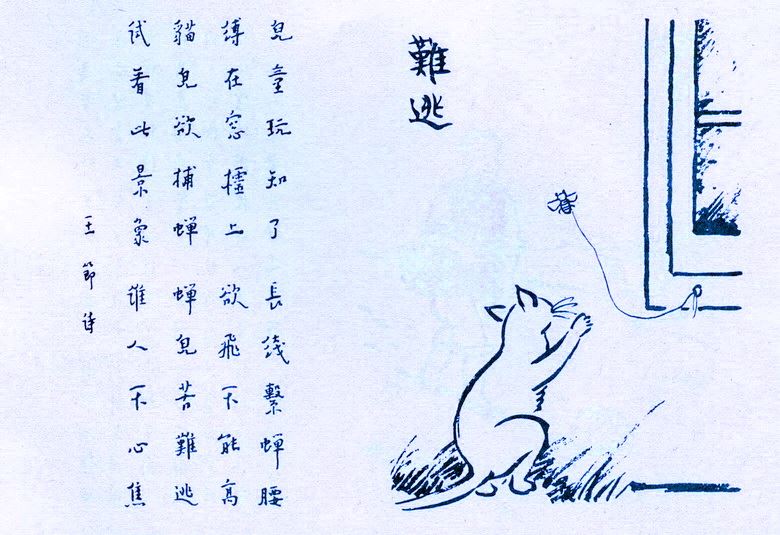 難逃
兒童玩知了 長綫繫蝉腰
縛在窓檯上 欲飛不能高
貓兒欲捕蝉 蝉兒苦難逃
試看此景象 誰人不心焦
王節詩